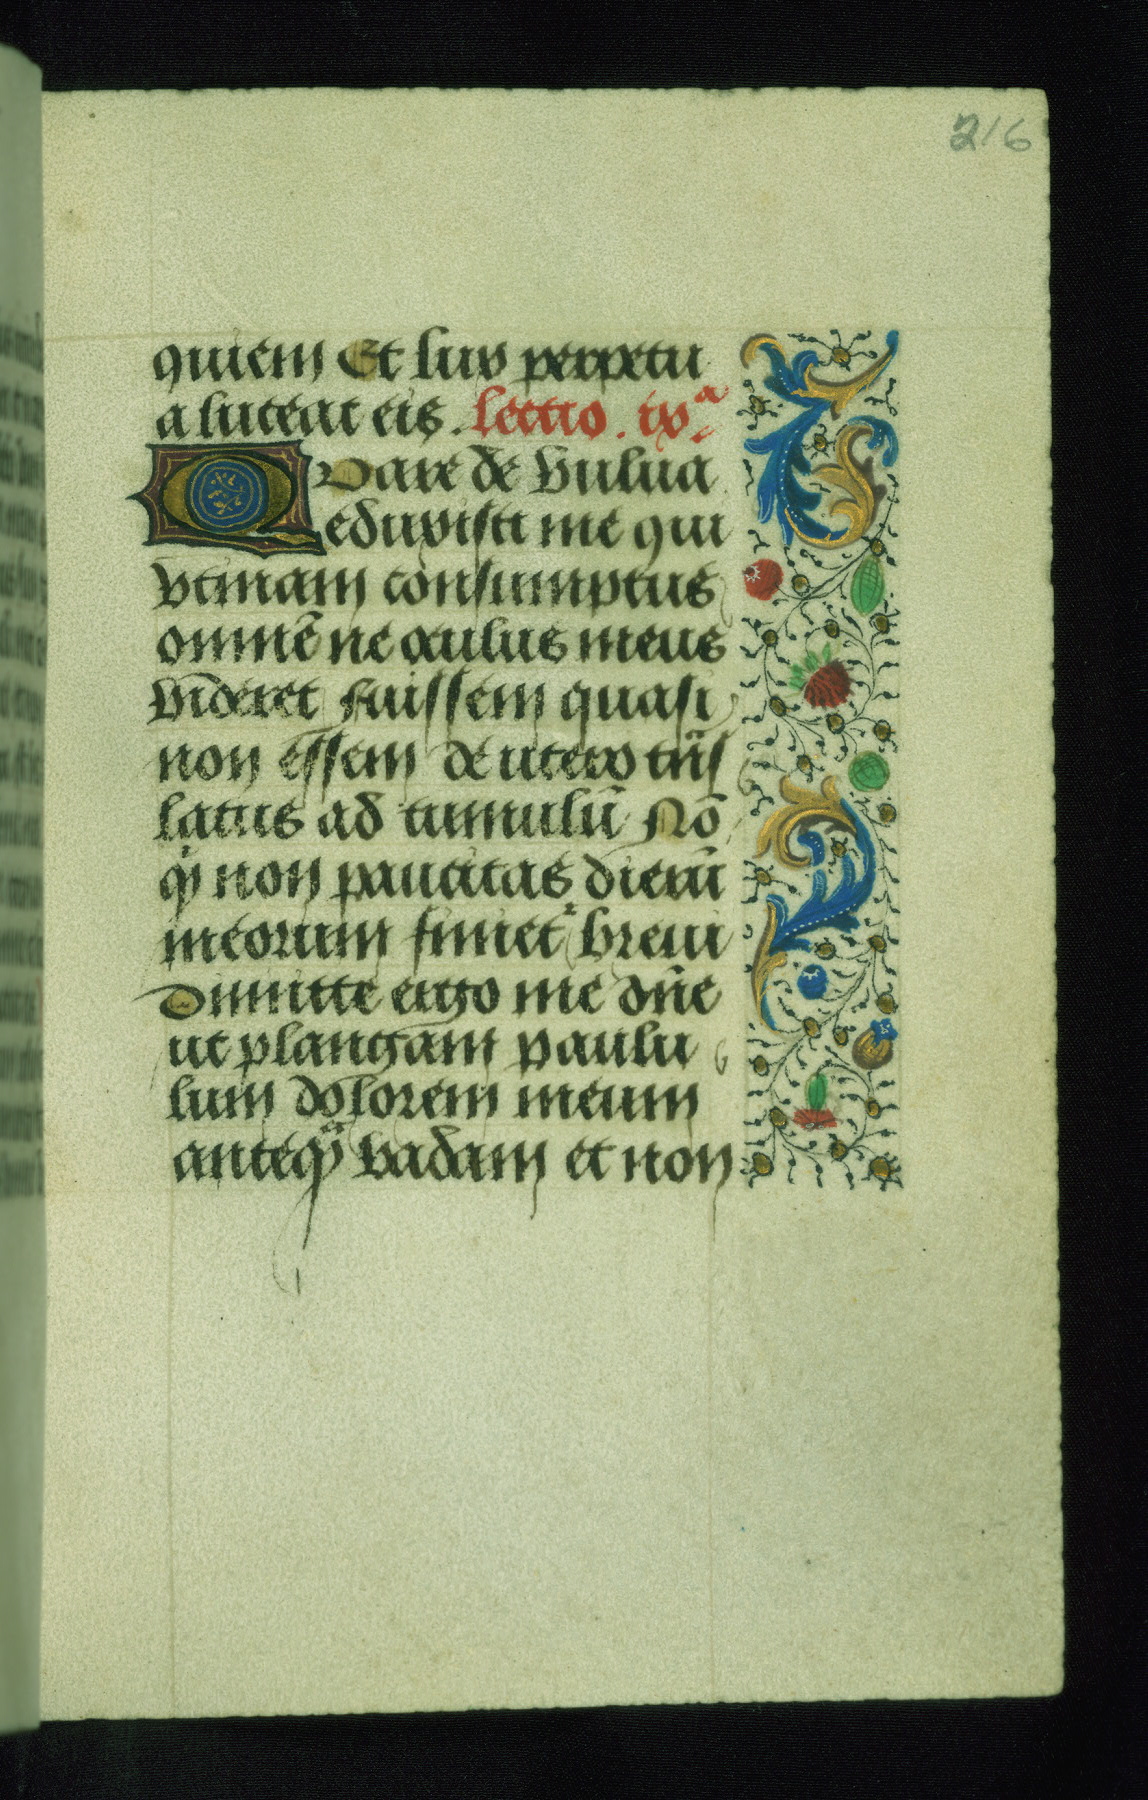 216
quiem Et lux perpetu
a luceat eis. Lectio. ixᵃ
Quare de vulua
eduxisti me qui
vtinam consumptus
omnē ne oculus meus
videret fuissem quasi
non essem de utero trās
latus ad tumulū Nō
qͥ non paucitas dierū
meorum finietᷣ breui
Dimitte ergo me dn̄e
ut plangam paulu
lum dolorem meum
anteqᷓ vadam et non